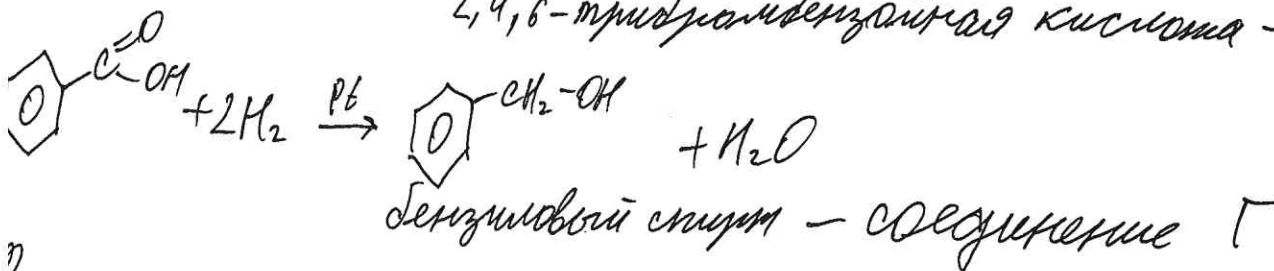 2,4,6-трибромбензойная кислота -
C=O
OH
+2H₂ Pt → CH₂-OH + H₂O
бензиловый спирт - соединение Г